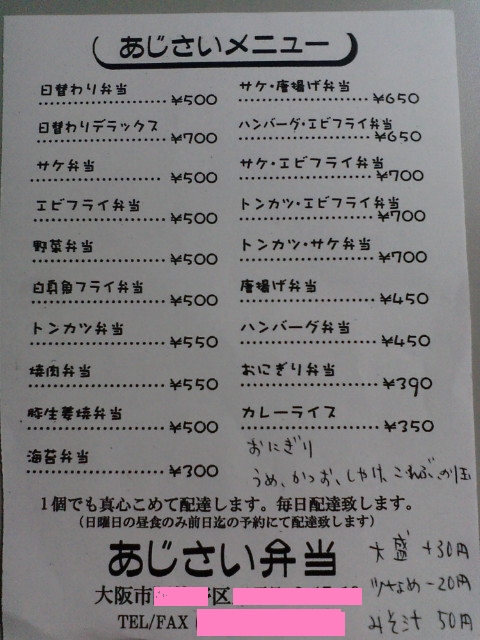 あじさいメニュー
日替わり弁当 ¥500
日替わりデラックス ¥700
サケ弁当 ¥500
エビフライ弁当 ¥500
野菜弁当 ¥500
白身魚フライ弁当 ¥500
トンカツ弁当 ¥550
焼肉弁当 ¥550
豚生姜焼弁当 ¥500
海苔弁当 ¥300
サケ・唐揚げ弁当 ¥650
ハンバーグ・エビフライ弁当 ¥650
サケ・エビフライ弁当 ¥700
トンカツ・エビフライ弁当 ¥700
トンカツ・サケ弁当 ¥700
唐揚げ弁当 ¥450
ハンバーグ弁当 ¥450
おにぎり弁当 ¥390
カレーライス ¥350
おにぎり
うめ、かつお、しゃけ、こんぶ、のり玉
1個でも真心こめて配達します。毎日配達致します。
(日曜日の昼食のみ前日迄の予約にて配達致します)
あじさい弁当
大阪市 区
TEL/FAX
大盛 +30円
少なめ -20円
みそ汁 50円